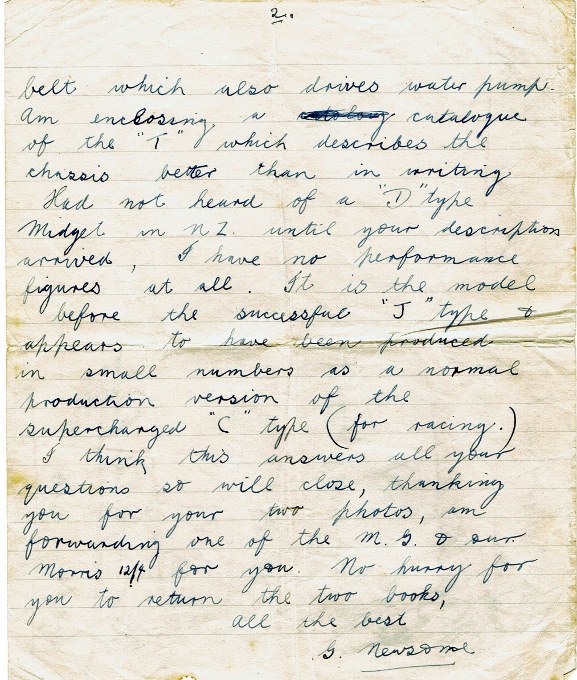 2.
belt which also drives water pump.
Am enclosing a catalogue
of the "T" which describes the
chassis better than in writing
Had not heard of a "D" type
Midget in N Z. until your description
arrived, I have no performance
figures at all. It is the model
before the successful "J" type &
appears to have been produced
in small numbers as a normal
production version of the
supercharged "C" type (for racing.)
I think this answers all your
questions so will close, thanking
you for your two photos, am
forwarding one of the M. G. & our
Morris 12/4 for you. No hurry for
you to return the two books,
all the best
G. Newsome